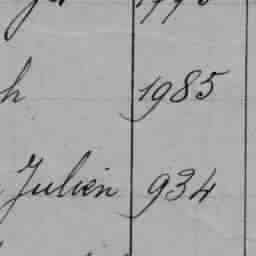 h 1985
Julien 934